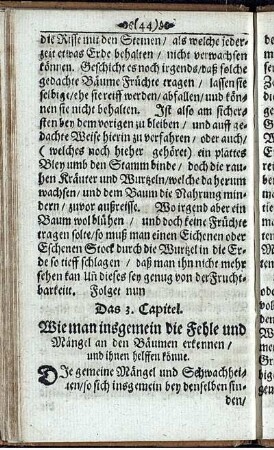 (44)
die Risse mit den Steinen / als welche jeder-
zeit etwas Erde behalten / nicht verwachsen
können. Geschicht es nochirgends / daß solche
gedachte Bäume Früchte tragen / lassen sie
selbige / ehe sie reiff werden / abfallen / und kön-
nen sie nicht behalten. Ist also am sicher-
sten bey dem vorigen zu bleiben / und auff ge-
dachte Weise hierin zu verfahren / oder auch /
( welches noch hieher gehöret ) ein plattes
Bley umb den Stamm binde / doch die rau-
hen Kräuter und Wurtzeln / welche da herum
wachsen / und dem Baum die Nahrung min-
dern / zuvor außreisse. Wo irgend aber ein
Baum wol blühen / und doch keine Früchte
tragen solte / so muß man einen Eichenen oder
Eschenen Stock durch die Wurtzel in die Er-
de so tieff schlagen / daß man ihn nicht mehr
sehen kan Uñ dieses sey genug von der Frucht-
barkeitt. Folget nun
Das 3. Capitel.
Wie man insgemein die Fehle und
Mängel an den Bäumen erkennen /
und ihnen helffen könne.
DIe gemeine Mängel und Schwachhei-
ten / so sich insgemein bey denselben fin-
den /